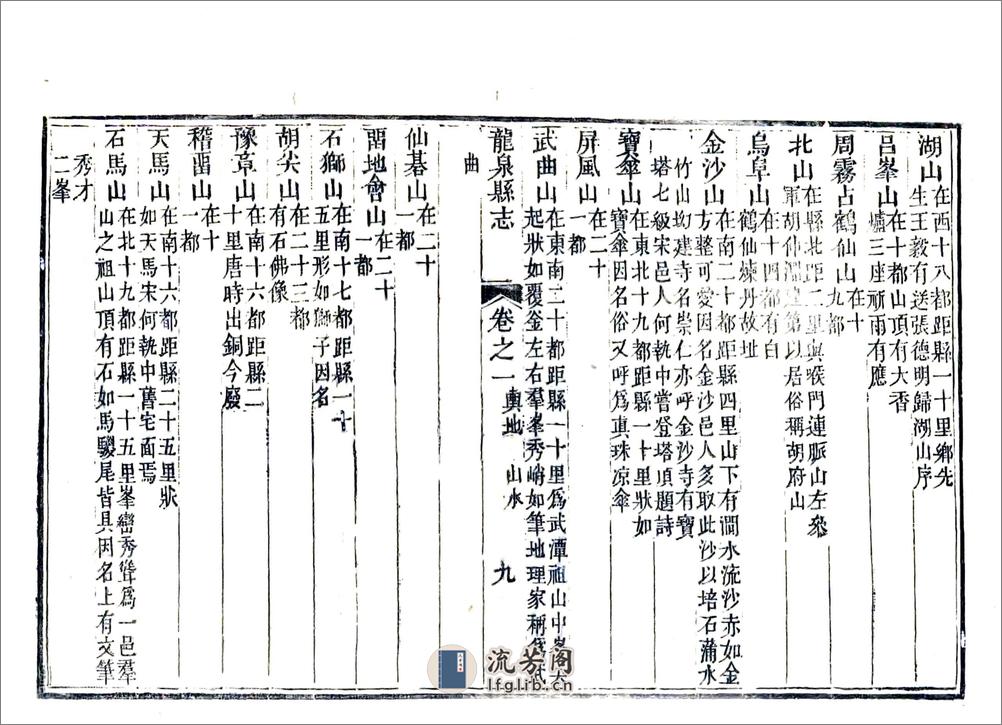 湖山在西十八都距縣一十里鄉先
生王毅有送張德明歸湖山序
呂峯山在十都山頂有大香
爐三座祈雨有應
周霧占鶴仙山在十
九都
北山在縣北距二里與喉門連脈山左叅
軍胡仲淵第以居俗稱胡府山
烏阜山在十四都有白
鶴仙煉丹故址
金沙山在南二十都距縣四里山下有澗水流沙赤如金
方整可愛因名金沙邑人多取此沙以培石蒲水
竹山坳建寺名崇仁亦呼金沙寺有寶
塔七級宋邑人何執中嘗登塔頂題詩
寶傘山在東北十九都距縣一十里狀如
寶傘因名俗又呼爲眞珠凉傘
屏風山在二十
一都
武曲山在東南二十都距縣一十里爲武潭祖山中
起狀如覆釜左右羣峯秀峭如筆地理家稱爲
龍泉縣志 卷之一 輿地 山水 九
曲
仙碁山在二十
一都
畱地會山在二十
一都
石獅山在南十七都距縣一十
五里形如獅子因名
胡尖山在二十三都
有石佛像
豫章山在南十六都距縣二
十里唐時出銅今廢
稽畱山在十
一都
天馬山在南十六都距縣二十五里狀
如天馬宋何執中舊宅面焉
石馬山在北十九都距縣一十五里峯巒秀聳爲一邑羣
山之祖山頂有石如馬騣尾皆具因名上有文筆
秀才
二峯
流芳阁
lfglib.cn